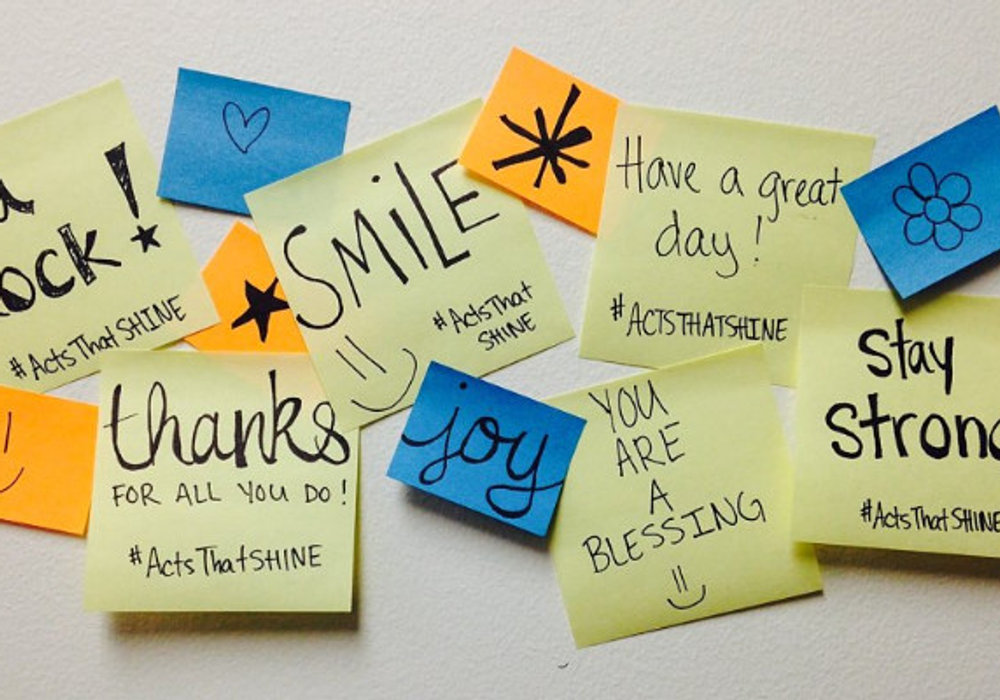 ock!
#ActsThatSHINE
SMiLE
#ActsThat
SHINE
Have a great
day!
#ACTSTHATSHINE
thanks
FOR ALL YOU DO!
#ActsThatSHINE
joy
YOU
ARE
A
BLESSING
Stay
Stron
#ActsThatSHINE